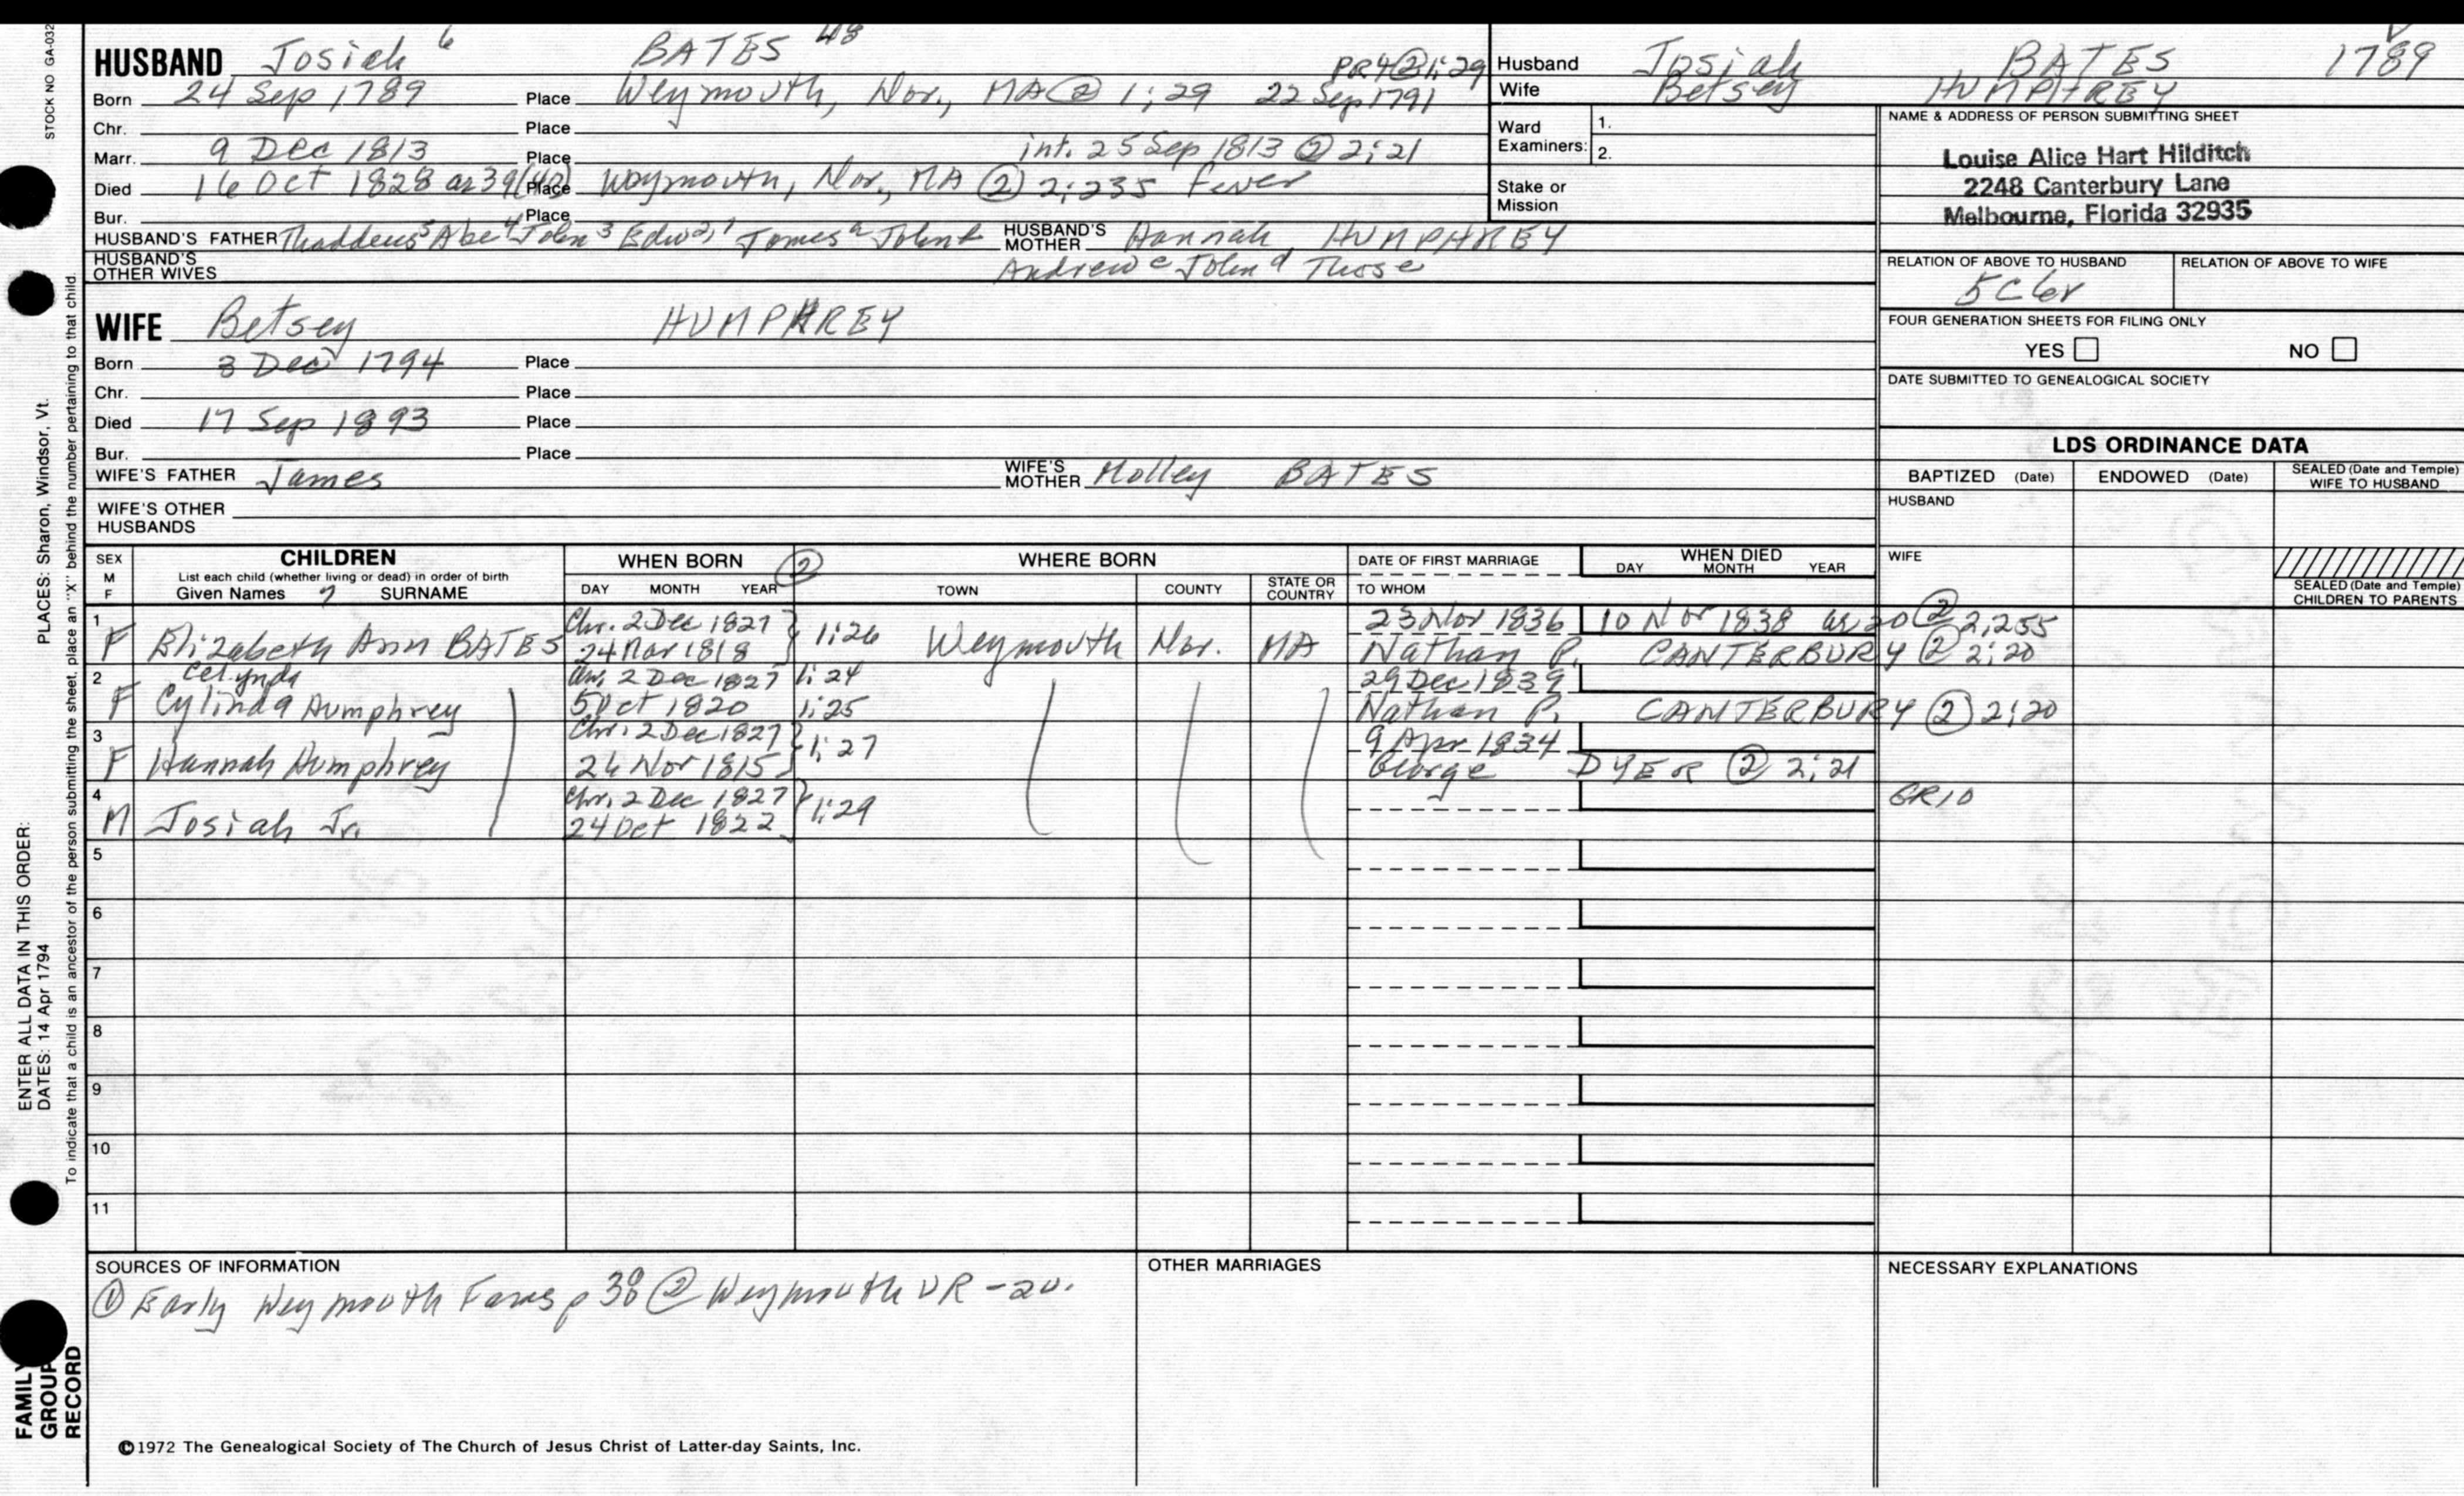 STOCK NO GA-032
HUSBAND Josiah 6 BATES 48 PR4 @ 1:29
Born 24 Sep 1789 Place Weymouth, Nor., MA @ 1;29 22 Sep 1791
Chr. Place
Marr. 9 Dec 1813 Place int. 25 Sep 1813 ② 2;21
Died 16 Oct 1828 as 39(40) Place Weymouth, Nor., MA ② 2;235 fever
Bur. Place
HUSBAND'S FATHER Thaddeus 5 Abe 4 John 3 Edw 2,1 James a John b HUSBAND'S MOTHER Hannah, HUMPHREY
HUSBAND'S OTHER WIVES Andrew c John d Thos e
WIFE Betsey HUMPHREY
Born 3 Dec 1794 Place
Chr. Place
Died 17 Sep 1893 Place
Bur. Place
WIFE'S FATHER James WIFE'S MOTHER Molley BATES
WIFE'S OTHER HUSBANDS
Husband Josiah BATES 1789
Wife Betsey HUMPHREY
Ward Examiners: 1.
2.
Stake or Mission
NAME & ADDRESS OF PERSON SUBMITTING SHEET
Louise Alice Hart Hilditch
2248 Canterbury Lane
Melbourne, Florida 32935
RELATION OF ABOVE TO HUSBAND RELATION OF ABOVE TO WIFE
5C6r
FOUR GENERATION SHEETS FOR FILING ONLY
YES NO
DATE SUBMITTED TO GENEALOGICAL SOCIETY
LDS ORDINANCE DATA
BAPTIZED (Date) ENDOWED (Date) SEALED (Date and Temple) WIFE TO HUSBAND
HUSBAND
WIFE
SEALED (Date and Temple) CHILDREN TO PARENTS
SEX M F CHILDREN WHEN BORN ② WHERE BORN DATE OF FIRST MARRIAGE WHEN DIED
List each child (whether living or dead) in order of birth
Given Names 7 SURNAME DAY MONTH YEAR TOWN COUNTY STATE OR COUNTRY TO WHOM DAY MONTH YEAR
1 Chr. 2 Dec 1827 23 Nov 1836 10 Nov 1838 as 20 ② 2;255
F Elizabeth Ann BATES 24 Mar 1818 1:26 Weymouth Nor. MA Nathan P. CANTERBURY ② 2;20
2 Celynda Chr. 2 Dec 1827 1:24 29 Dec 1839
F Cylinda Humphrey 5 Oct 1820 1;25 Nathan P. CANTERBURY ② 2;20
3 Chr. 2 Dec 1827 1;27 9 Apr 1834
F Hannah Humphrey 26 Nov 1815 George DYER ② 2;21
4 Chr. 2 Dec 1827 1;29 GR10
M Josiah Jr. 24 Oct 1822
5
6
7
8
9
10
11
SOURCES OF INFORMATION
① Early Weymouth Fams p 38 ② Weymouth VR - 2v.
OTHER MARRIAGES
NECESSARY EXPLANATIONS
©1972 The Genealogical Society of The Church of Jesus Christ of Latter-day Saints, Inc.
ENTER ALL DATA IN THIS ORDER:
DATES: 14 Apr 1794 PLACES: Sharon, Windsor, Vt.
To indicate that a child is an ancestor of the person submitting the sheet, place an "X" behind the number pertaining to that child.
FAMILY
GROUP
RECORD